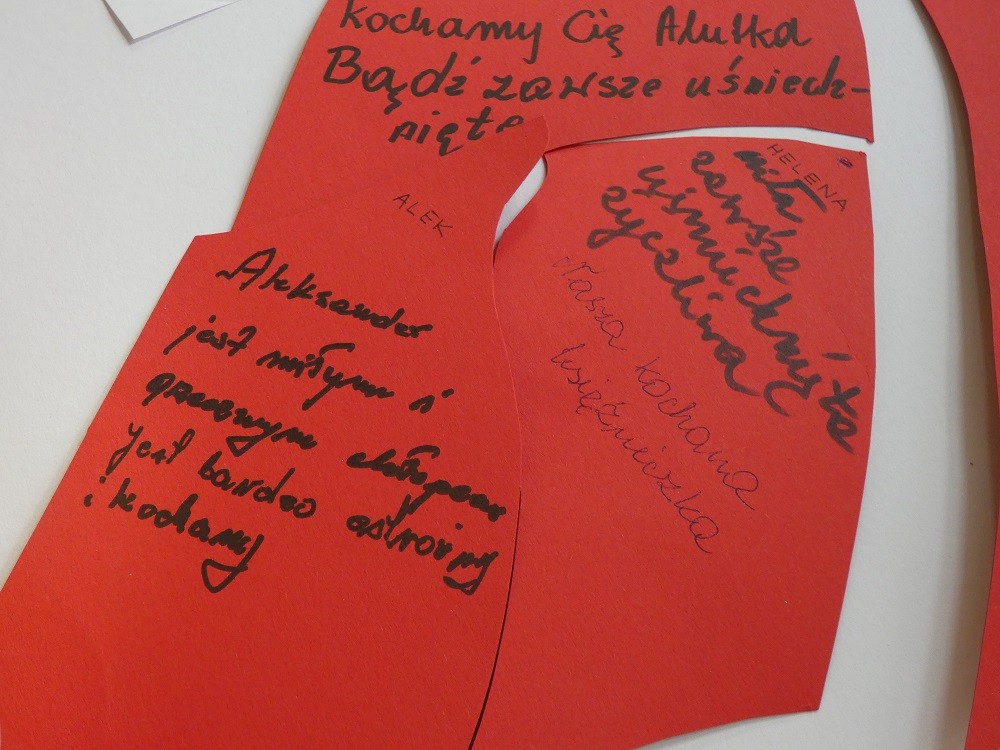 kochamy Cię Alutka
Bądź zawsze uśmiech-
nięta
ALEK
Aleksander
jest miłym i
grzecznym chłopcem
jest bardzo ostrożny
i kochamy
HELENA
miła
zawsze
uśmiechnięta
życzliwa
Nasza kochana
księżniczka